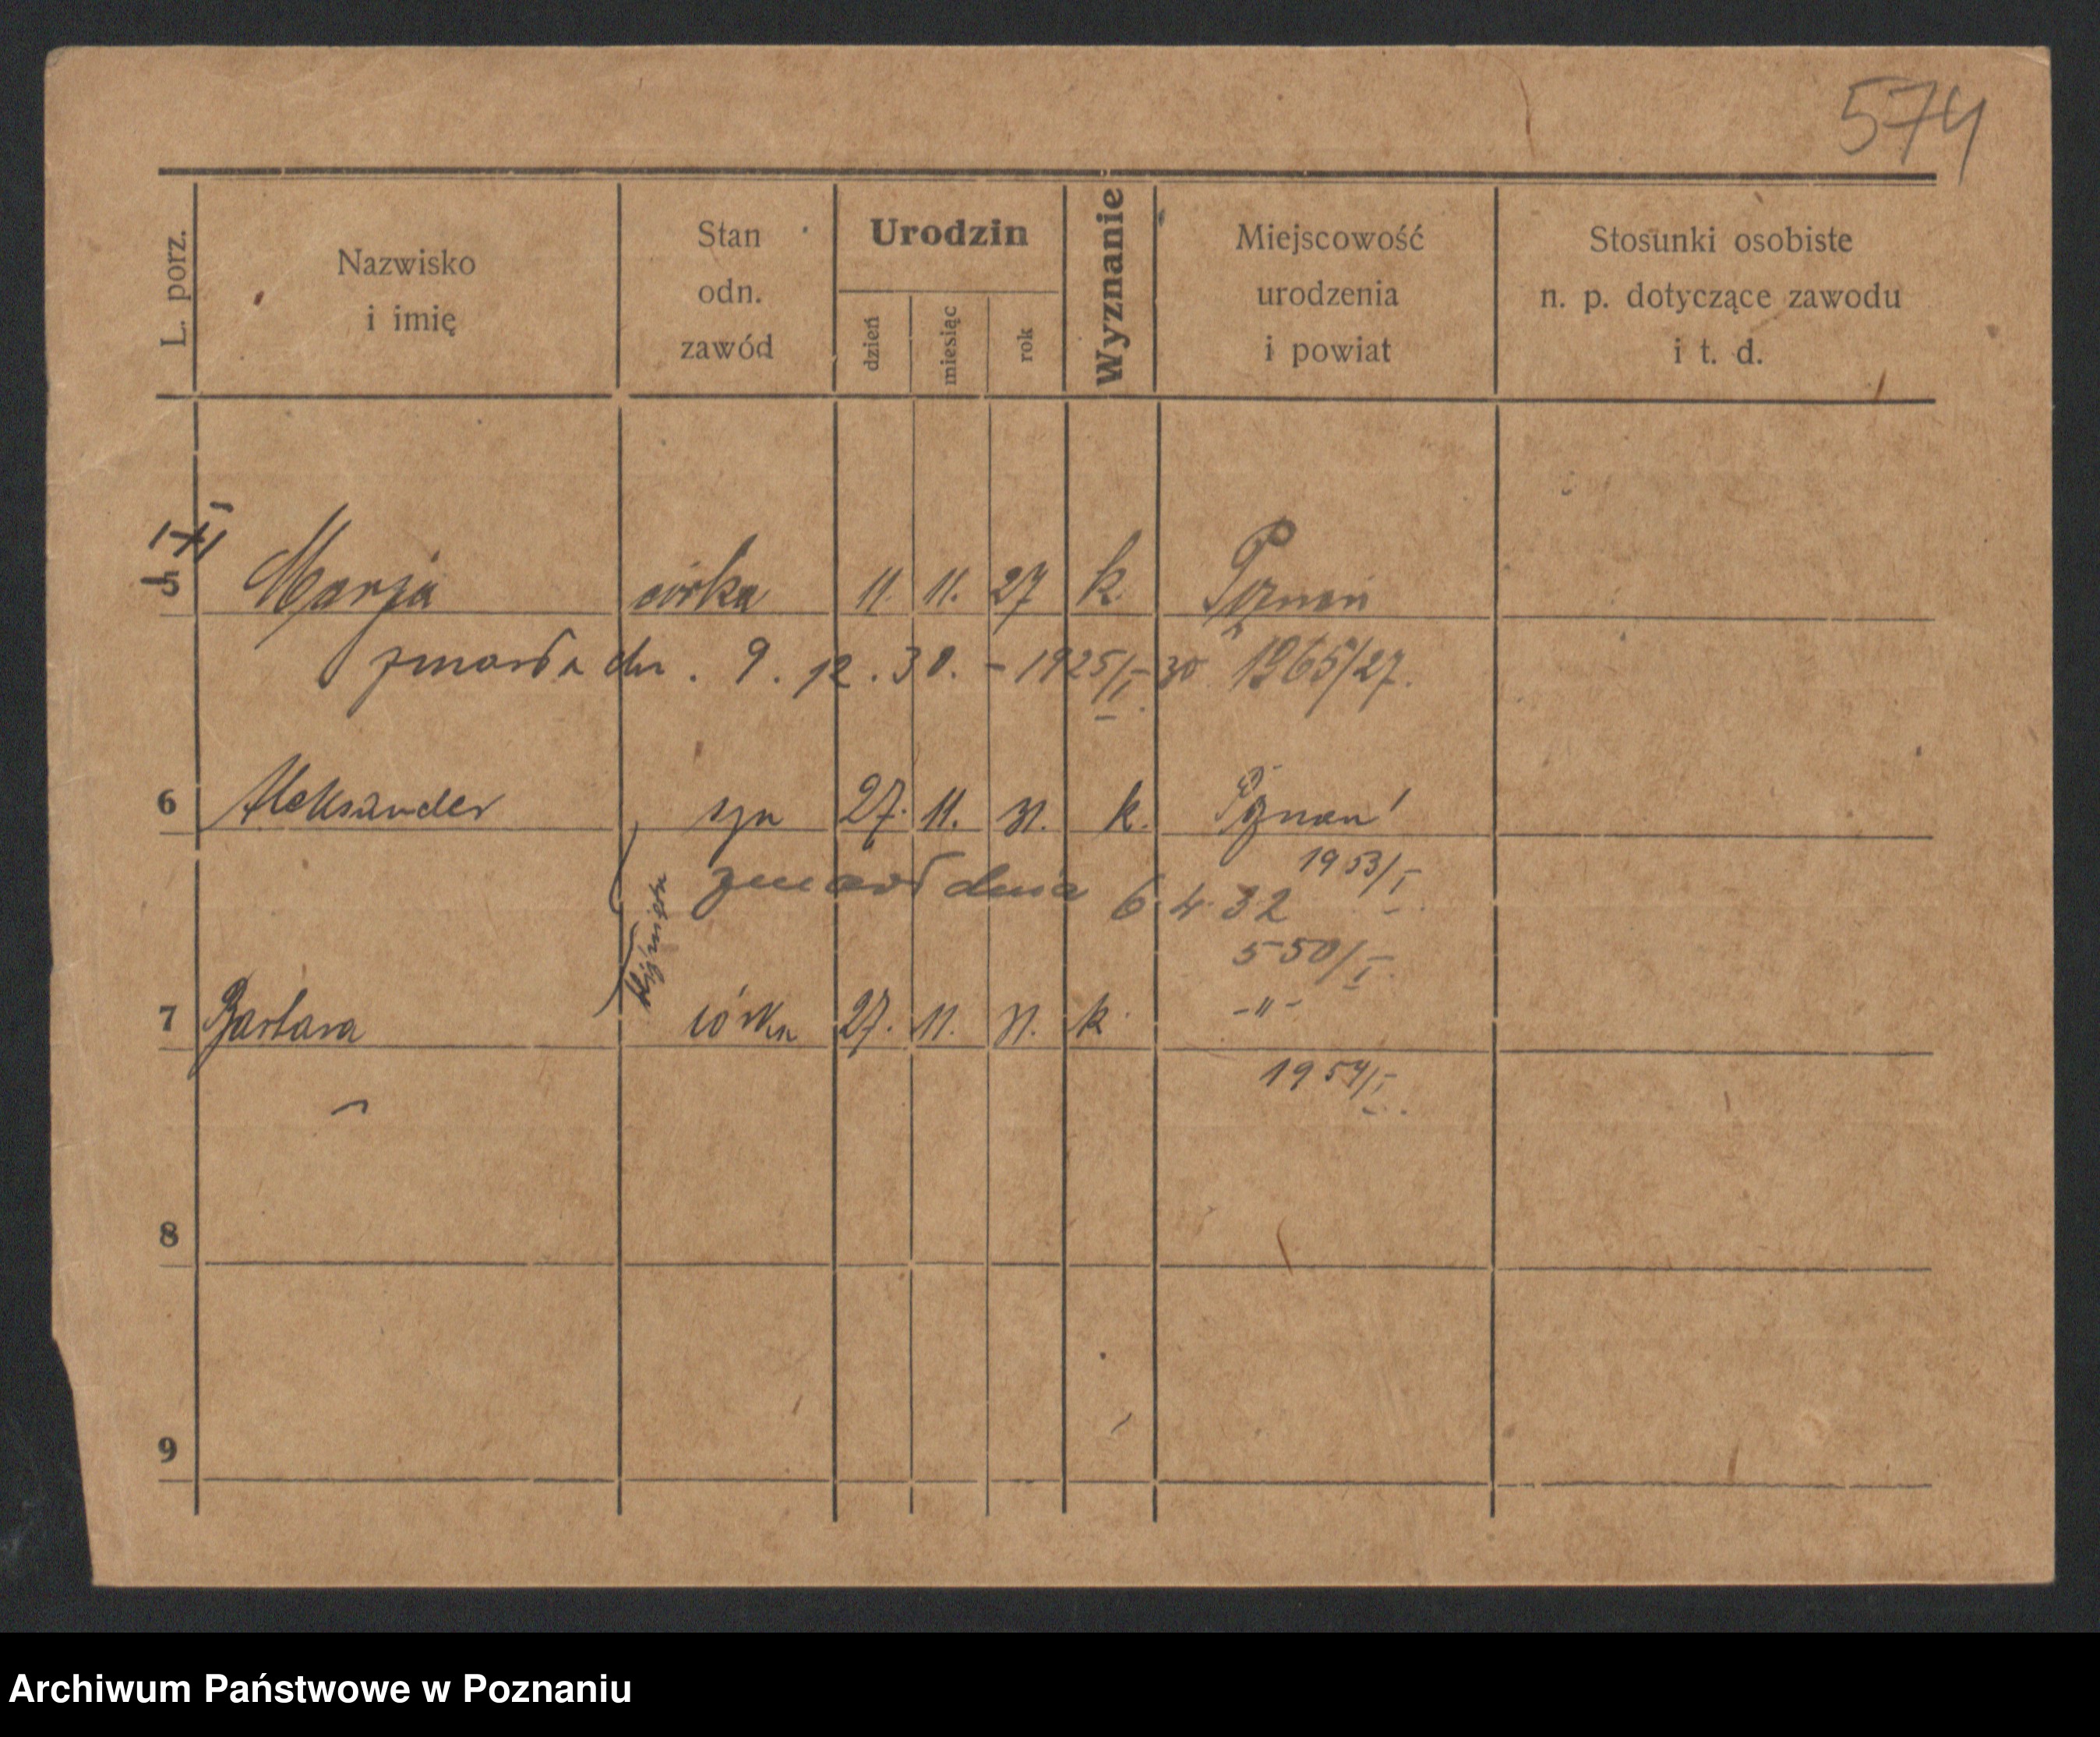 574
L. porz.
Nazwisko
i imię
Stan
odn.
zawód
Urodzin
dzień
miesiąc
rok
Wyznanie
Miejscowość
urodzenia
i powiat
Stosunki osobiste
n. p. dotyczące zawodu
i t. d.
5 Marja córka 11 11. 27 k. Poznań
zmarła dn. 9. 12. 30. - 1925/I-30 1965/27.
6 Aleksander syn 27. 11. 31. k. Poznań
1953/I.
zmarł dnia 6 4 32
550/I.
bliźnięta
7 Barbara córka 27. 11. 31. k. -"-
1954/I.
8
9
Archiwum Państwowe w Poznaniu